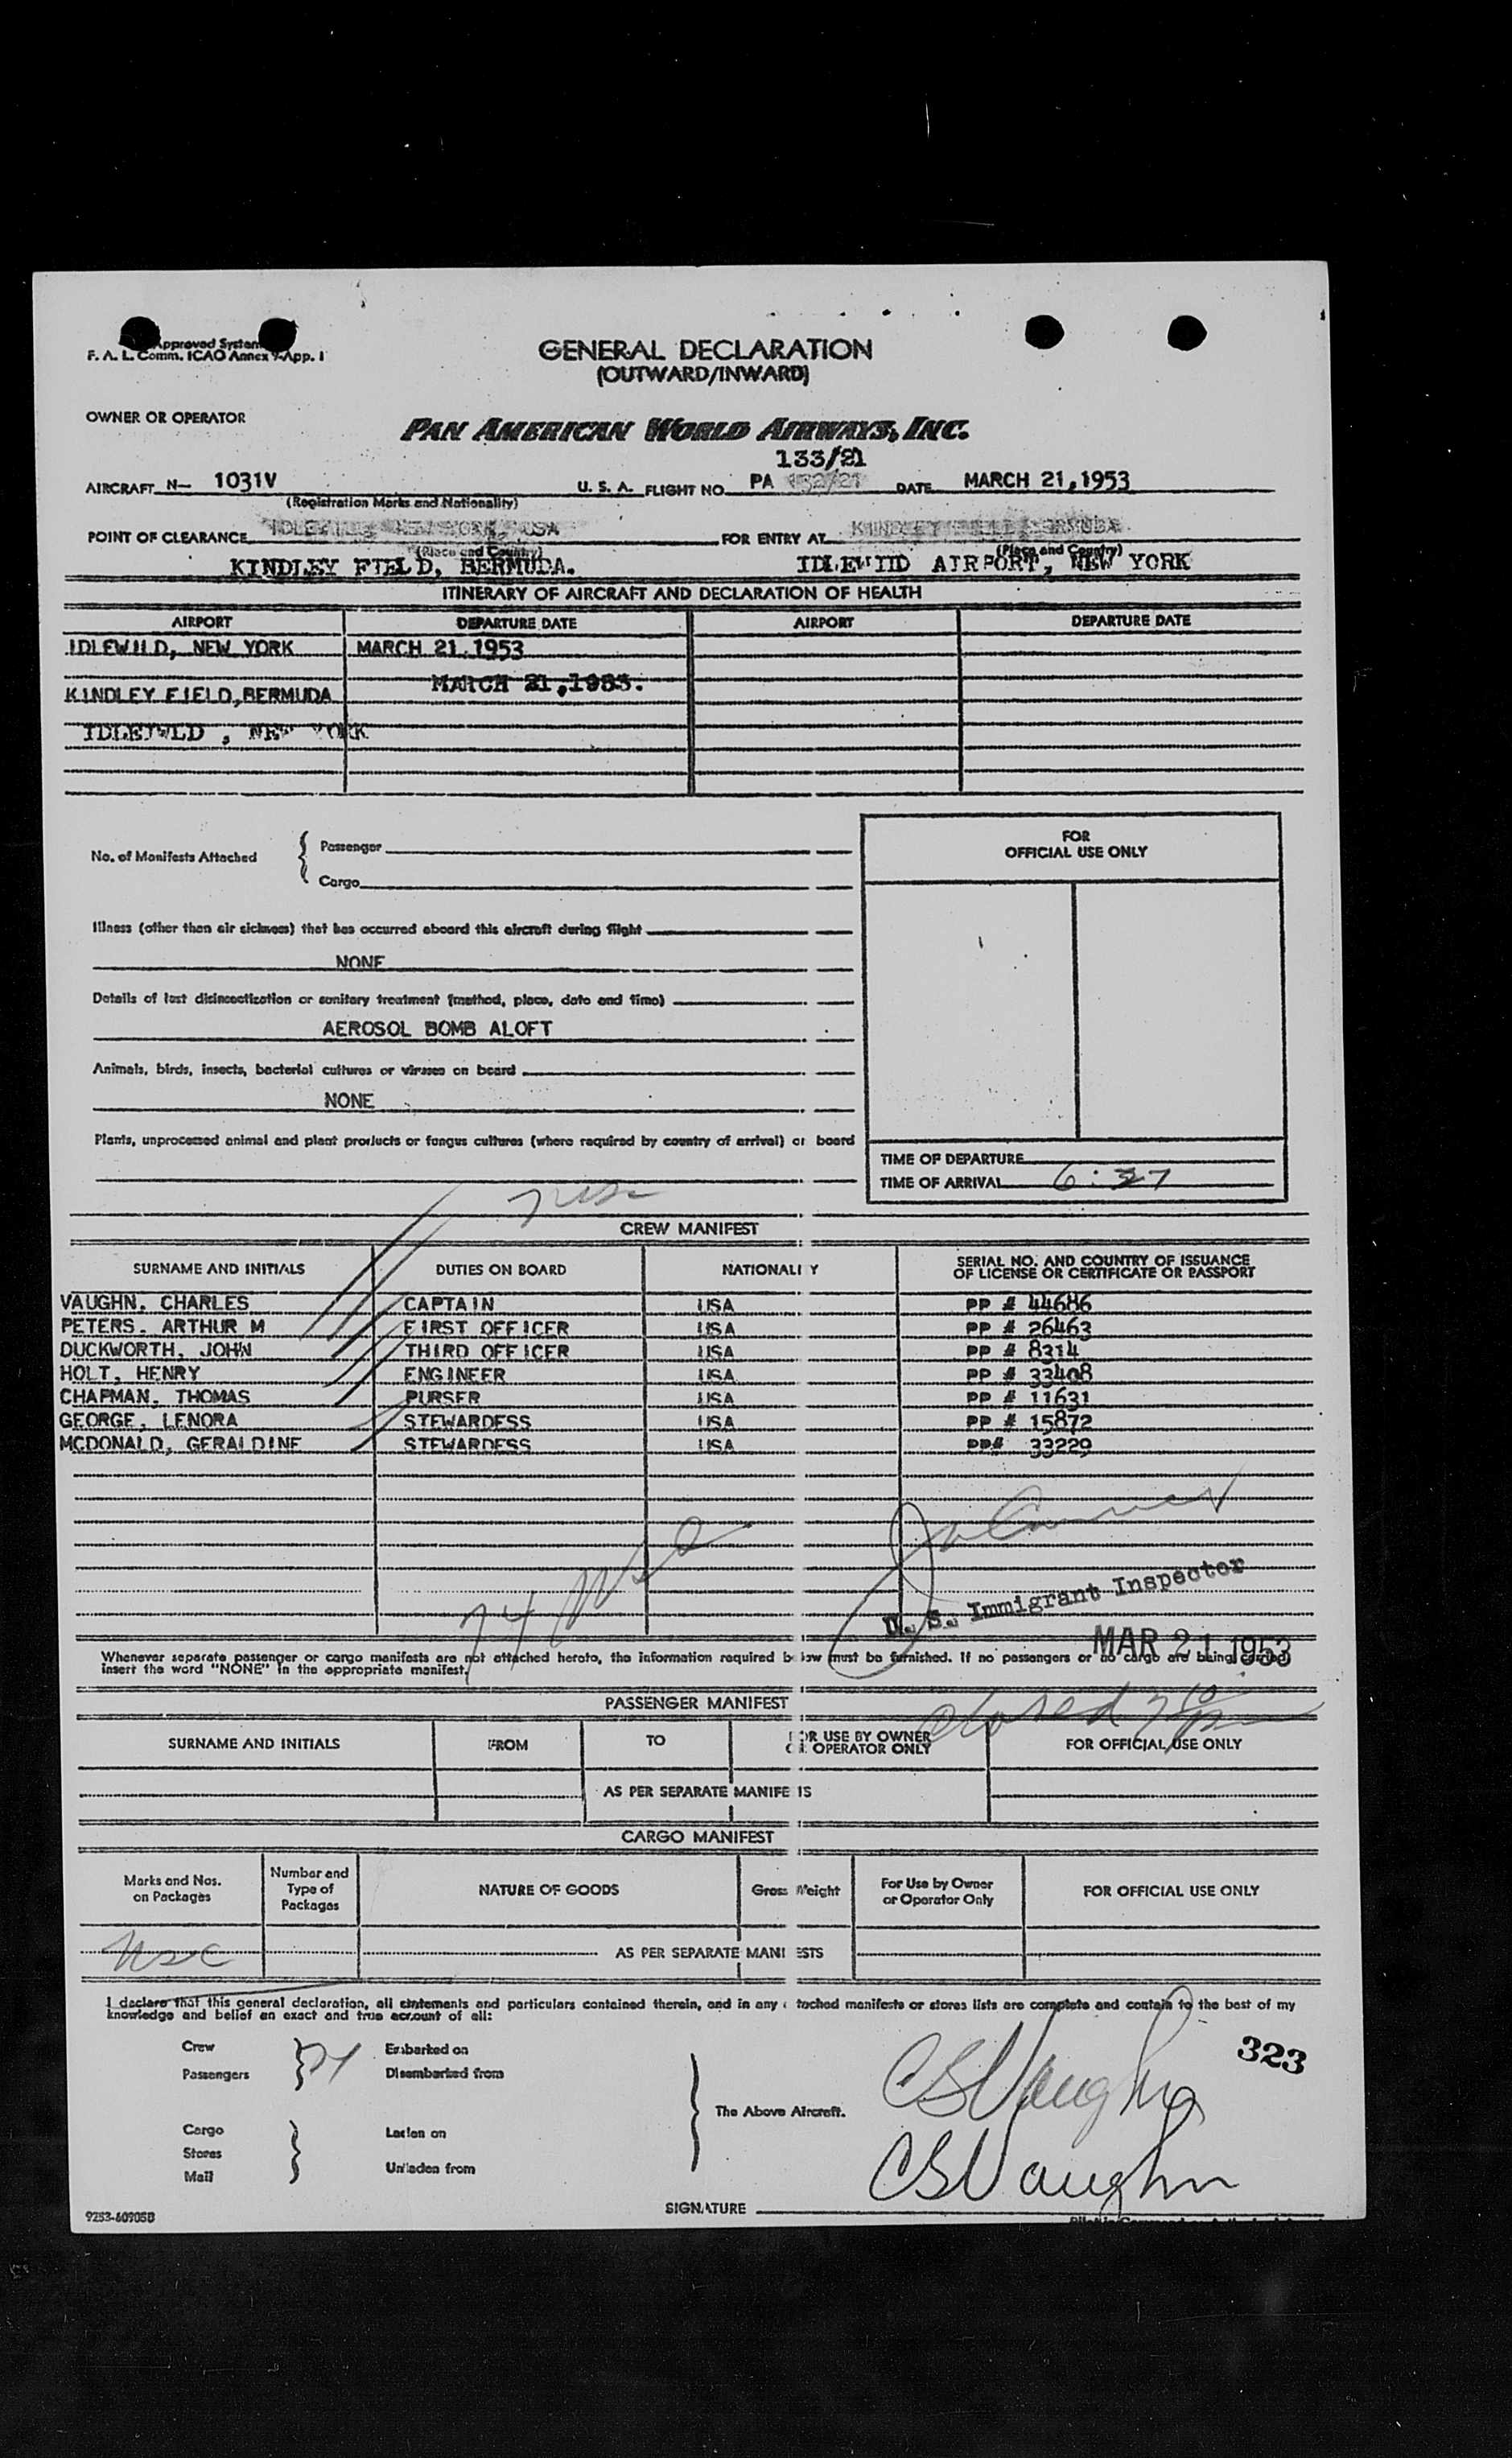 Approved System
F. A. L. Comm. ICAO Annex 9-App. 1
GENERAL DECLARATION
(OUTWARD/INWARD)
OWNER OR OPERATOR
PAN AMERICAN WORLD AIRWAYS, INC.
133/21
AIRCRAFT N— 1031V U. S. A. FLIGHT NO. PA 132/21 DATE MARCH 21,1953
(Registration Marks and Nationality)
POINT OF CLEARANCE IDLEWILD, NEW YORK, USA FOR ENTRY AT KINDLEY FIELD BERMUDA
(Place and Country) (Place and Country)
KINDLEY FIELD, BERMUDA. IDLEWIID AIRPORT, NEW YORK
ITINERARY OF AIRCRAFT AND DECLARATION OF HEALTH
AIRPORT DEPARTURE DATE AIRPORT DEPARTURE DATE
IDLEWILD, NEW YORK MARCH 21,1953
KINDLEY FIELD,BERMUDA MARCH 21,1953.
, NEW YORK
FOR
OFFICIAL USE ONLY
No. of Manifests Attached
Passenger
Cargo
Illness (other than air sickness) that has occurred aboard this aircraft during flight
NONE
Details of last disinsectization or sanitary treatment (method, place, date and time)
AEROSOL BOMB ALOFT
Animals, birds, insects, bacterial cultures or viruses on board
NONE
Plants, unprocessed animal and plant products or fungus cultures (where required by country of arrival) or board
TIME OF DEPARTURE
TIME OF ARRIVAL 6:27
CREW MANIFEST
SURNAME AND INITIALS DUTIES ON BOARD NATIONALI Y SERIAL NO. AND COUNTRY OF ISSUANCE
OF LICENSE OR CERTIFICATE OR PASSPORT
VAUGHN, CHARLES CAPTAIN USA PP # 44686
PETERS, ARTHUR M FIRST OFFICER USA PP # 26463
DUCKWORTH, JOHN THIRD OFFICER USA PP # 8314
HOLT, HENRY ENGINEER USA PP # 33408
CHAPMAN, THOMAS PURSER USA PP # 11631
GEORGE, LENORA STEWARDESS USA PP # 15872
MCDONALD, GERALDINE STEWARDESS USA PP# 33229
74
U. S. Immigrant Inspector
MAR 21 1953
Whenever separate passenger or cargo manifests are not attached hereto, the information required below must be furnished. If no passengers or no cargo are being carried
insert the word "NONE" in the appropriate manifest.
PASSENGER MANIFEST
closed
SURNAME AND INITIALS FROM TO FOR USE BY OWNER
OR OPERATOR ONLY FOR OFFICIAL USE ONLY
AS PER SEPARATE MANIFE IS
CARGO MANIFEST
Marks and Nos.
on Packages Number and
Type of
Packages NATURE OF GOODS Gross Weight For Use by Owner
or Operator Only FOR OFFICIAL USE ONLY
AS PER SEPARATE MANI ESTS
I declare that this general declaration, all statements and particulars contained therein, and in any a tached manifests or stores lists are complete and contain to the best of my
knowledge and belief an exact and true account of all:
Crew Embarked on
Passengers Disembarked from
323
The Above Aircraft.
CSVaughn
Cargo Laden on
Stores
Mail Unladen from
CSVaughn
SIGNATURE
9253-60905B